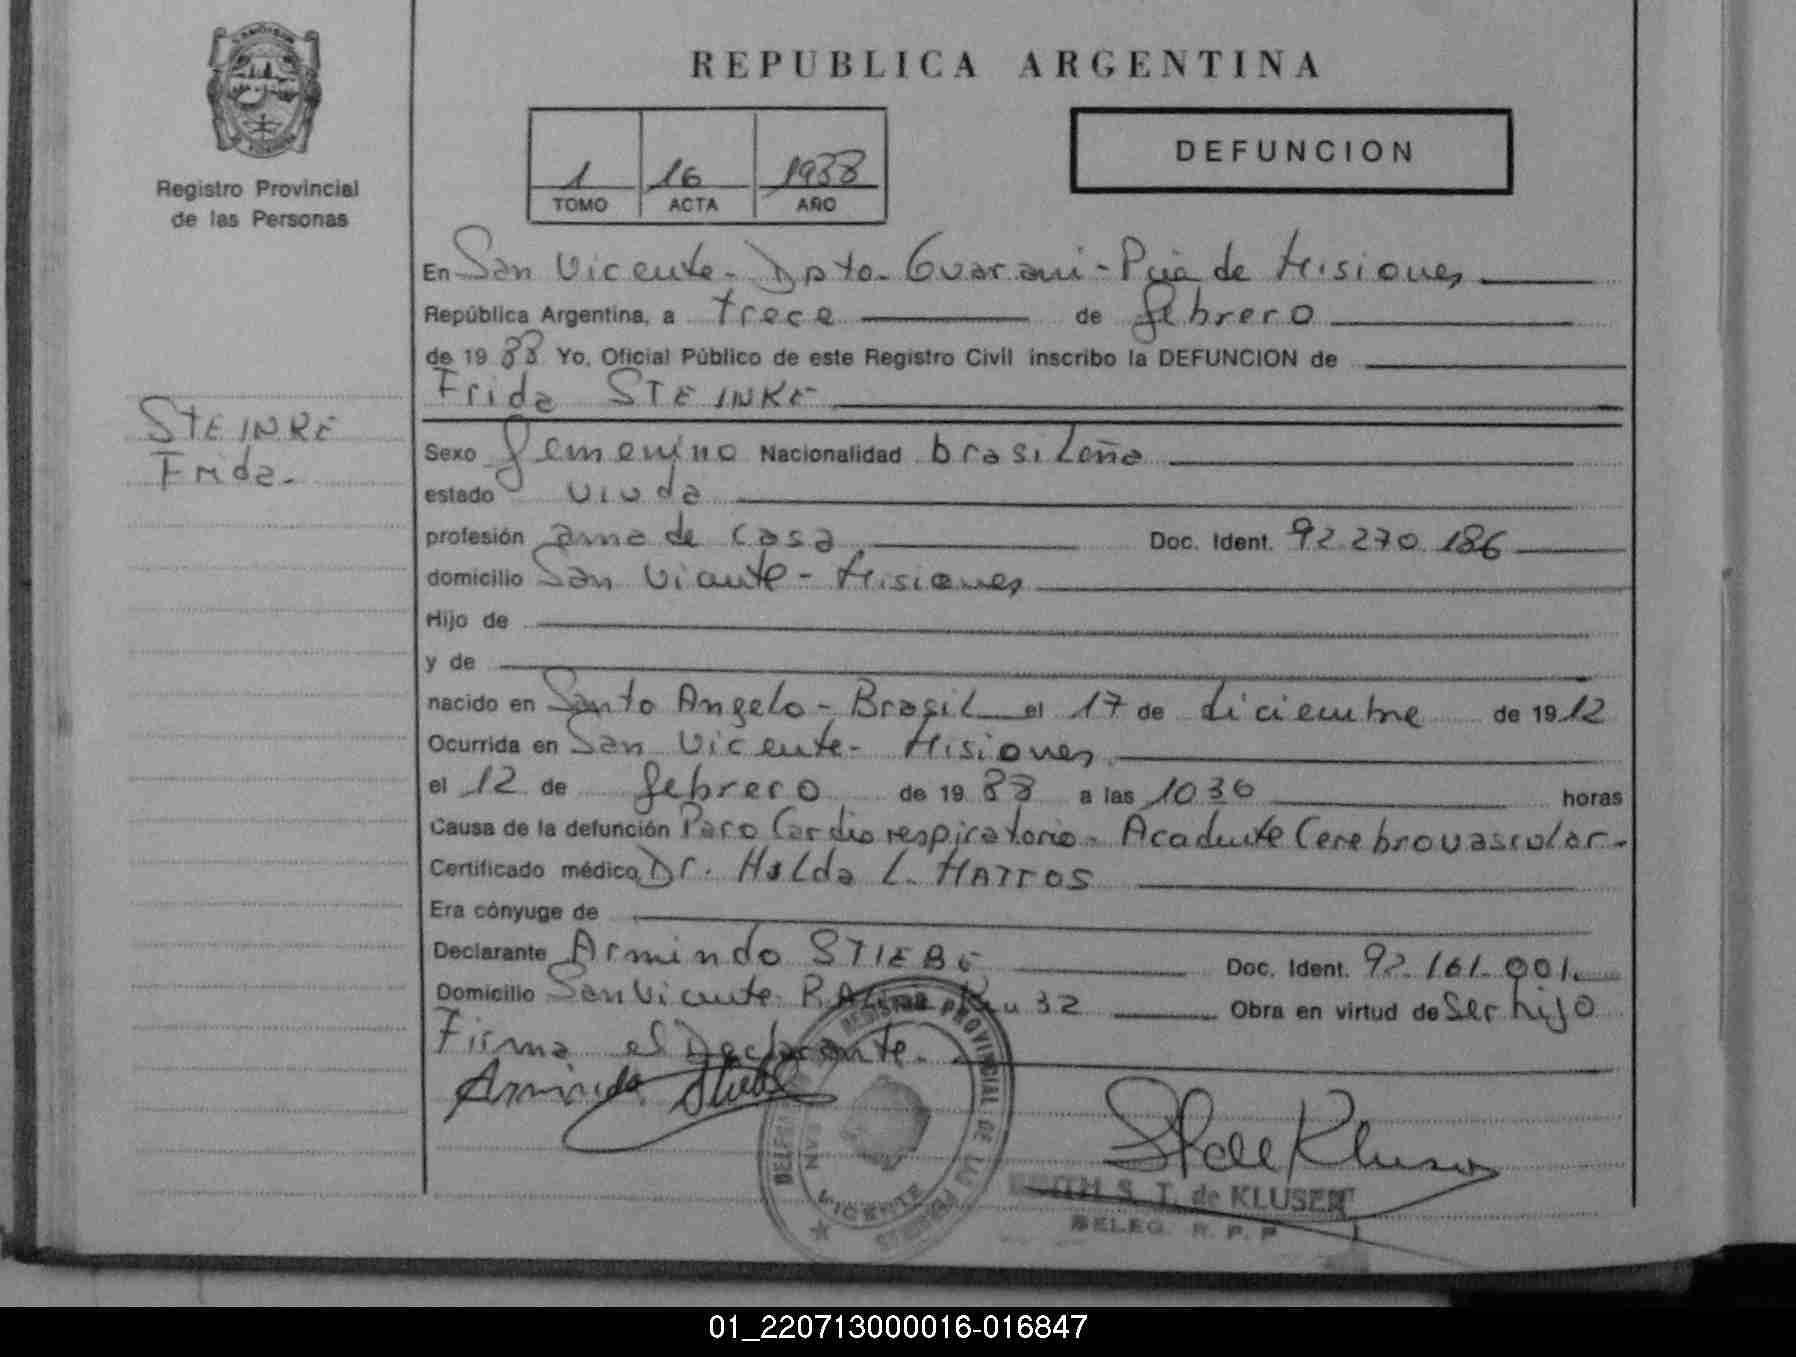 REPUBLICA ARGENTINA
Registro Provincial
de las Personas
1 16 1988
TOMO ACTA AÑO
DEFUNCION
En San Vicente - Dpto. Guarani - Pcia de Misiones
República Argentina, a trece de febrero
de 1988 Yo, Oficial Público de este Registro Civil inscribo la DEFUNCION de
Frida STEINKE
STEINKE
Frida.
Sexo femenino Nacionalidad brasileña
estado viuda
profesión ama de casa Doc. Ident. 92.270.186
domicilio San Vicente - Misiones
Hijo de
y de
nacido en Santo Angelo - Brasil el 17 de diciembre de 1912
Ocurrida en San Vicente - Misiones
el 12 de febrero de 1988 a las 1030 horas
Causa de la defunción Paro Cardiorespiratorio - Acadente Cerebrovascular -
Certificado médico Dr. Hilda L. MATTOS
Era cónyuge de
Declarante Armindo STIEBE Doc. Ident. 92.161.001.
Domicilio San Vicente 32 Obra en virtud de ser hijo
Firma el Declarante.
Armindo Stiebe
REGISTRO PROVINCIAL DE LAS PERSONAS
SAN VICENTE
EDITH S. T. de KLUSEN
DELEG. R. P. P
01_220713000016-016847